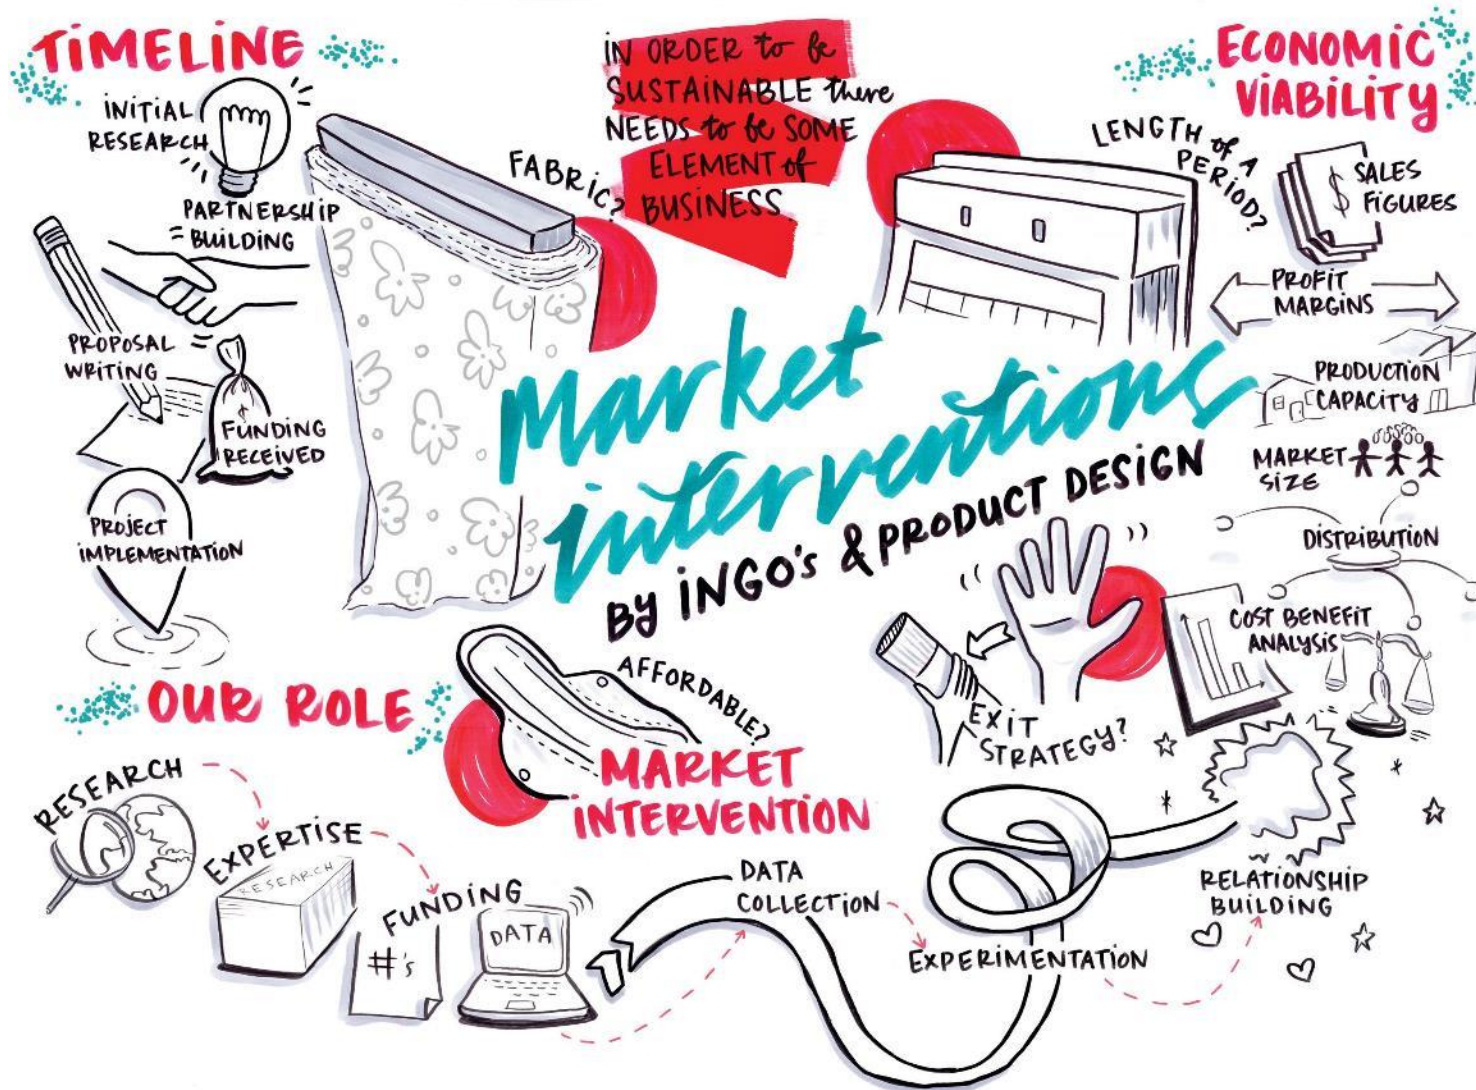 TiMELiNE
iNiTiAL
RESEARCH
PARTNERSHiP
BUiLDiNG
PROPOSAL
WRiTiNG
FUNDiNG
RECEiVED
PROJECT
iMPLEMENTATiON
FABRiC?
iN ORDER to be
SUSTAiNABLE there
NEEDS to be SOME
ELEMENT of
BUSiNESS
ECONOMiC
ViABiLiTY
LENGTH of A
PERiOD?
$ SALES
FiGURES
PROFiT
MARGiNS
PRODUCTiON
CAPACiTY
MARKET
SiZE
DiSTRiBUTiON
COST BENEFiT
ANALYSiS
Market
interventions
BY iNGO's & PRODUCT DESiGN
EXiT
STRATEGY?
AFFORDABLE?
OUR ROLE
RESEARCH
EXPERTiSE
RESEARCH
FUNDiNG
#'s
DATA
MARKET
iNTERVENTiON
DATA
COLLECTiON
EXPERiMENTATiON
RELATiONSHiP
BUiLDiNG